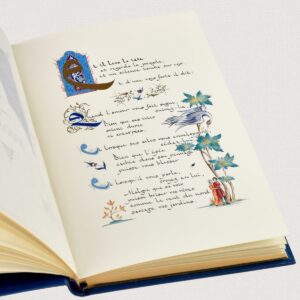 Et il leva la tête
et regarda le peuple,
et un silence tomba sur eux.
Et d'une voix forte il dit:
Quand l'amour vous fait signe,
suivez-le
Bien que ses voies
soient dures
et escarpées.
Et lorsque ses ailes vous enveloppent,
cédez-lui
Bien que l'épée
cachée dans son pennage
puisse vous blesser
Et lorsqu'il vous parle,
croyez en lui,
Malgré que sa voix
puisse briser vos rêves
comme le vent du nord
saccage vos jardins.